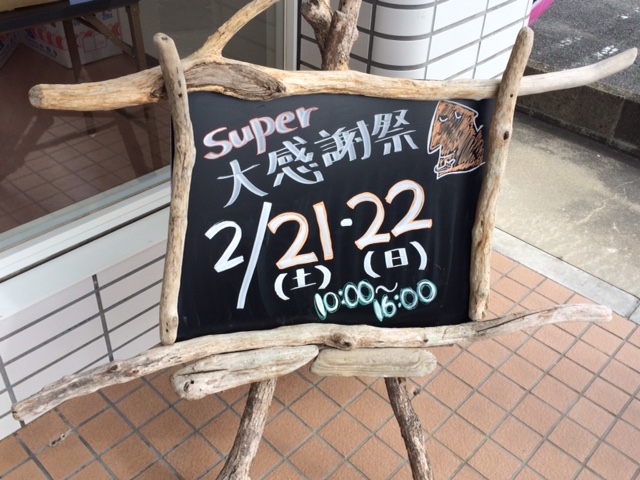 Super
大感謝祭
2/21・22
(土) (日)
10:00~16:00